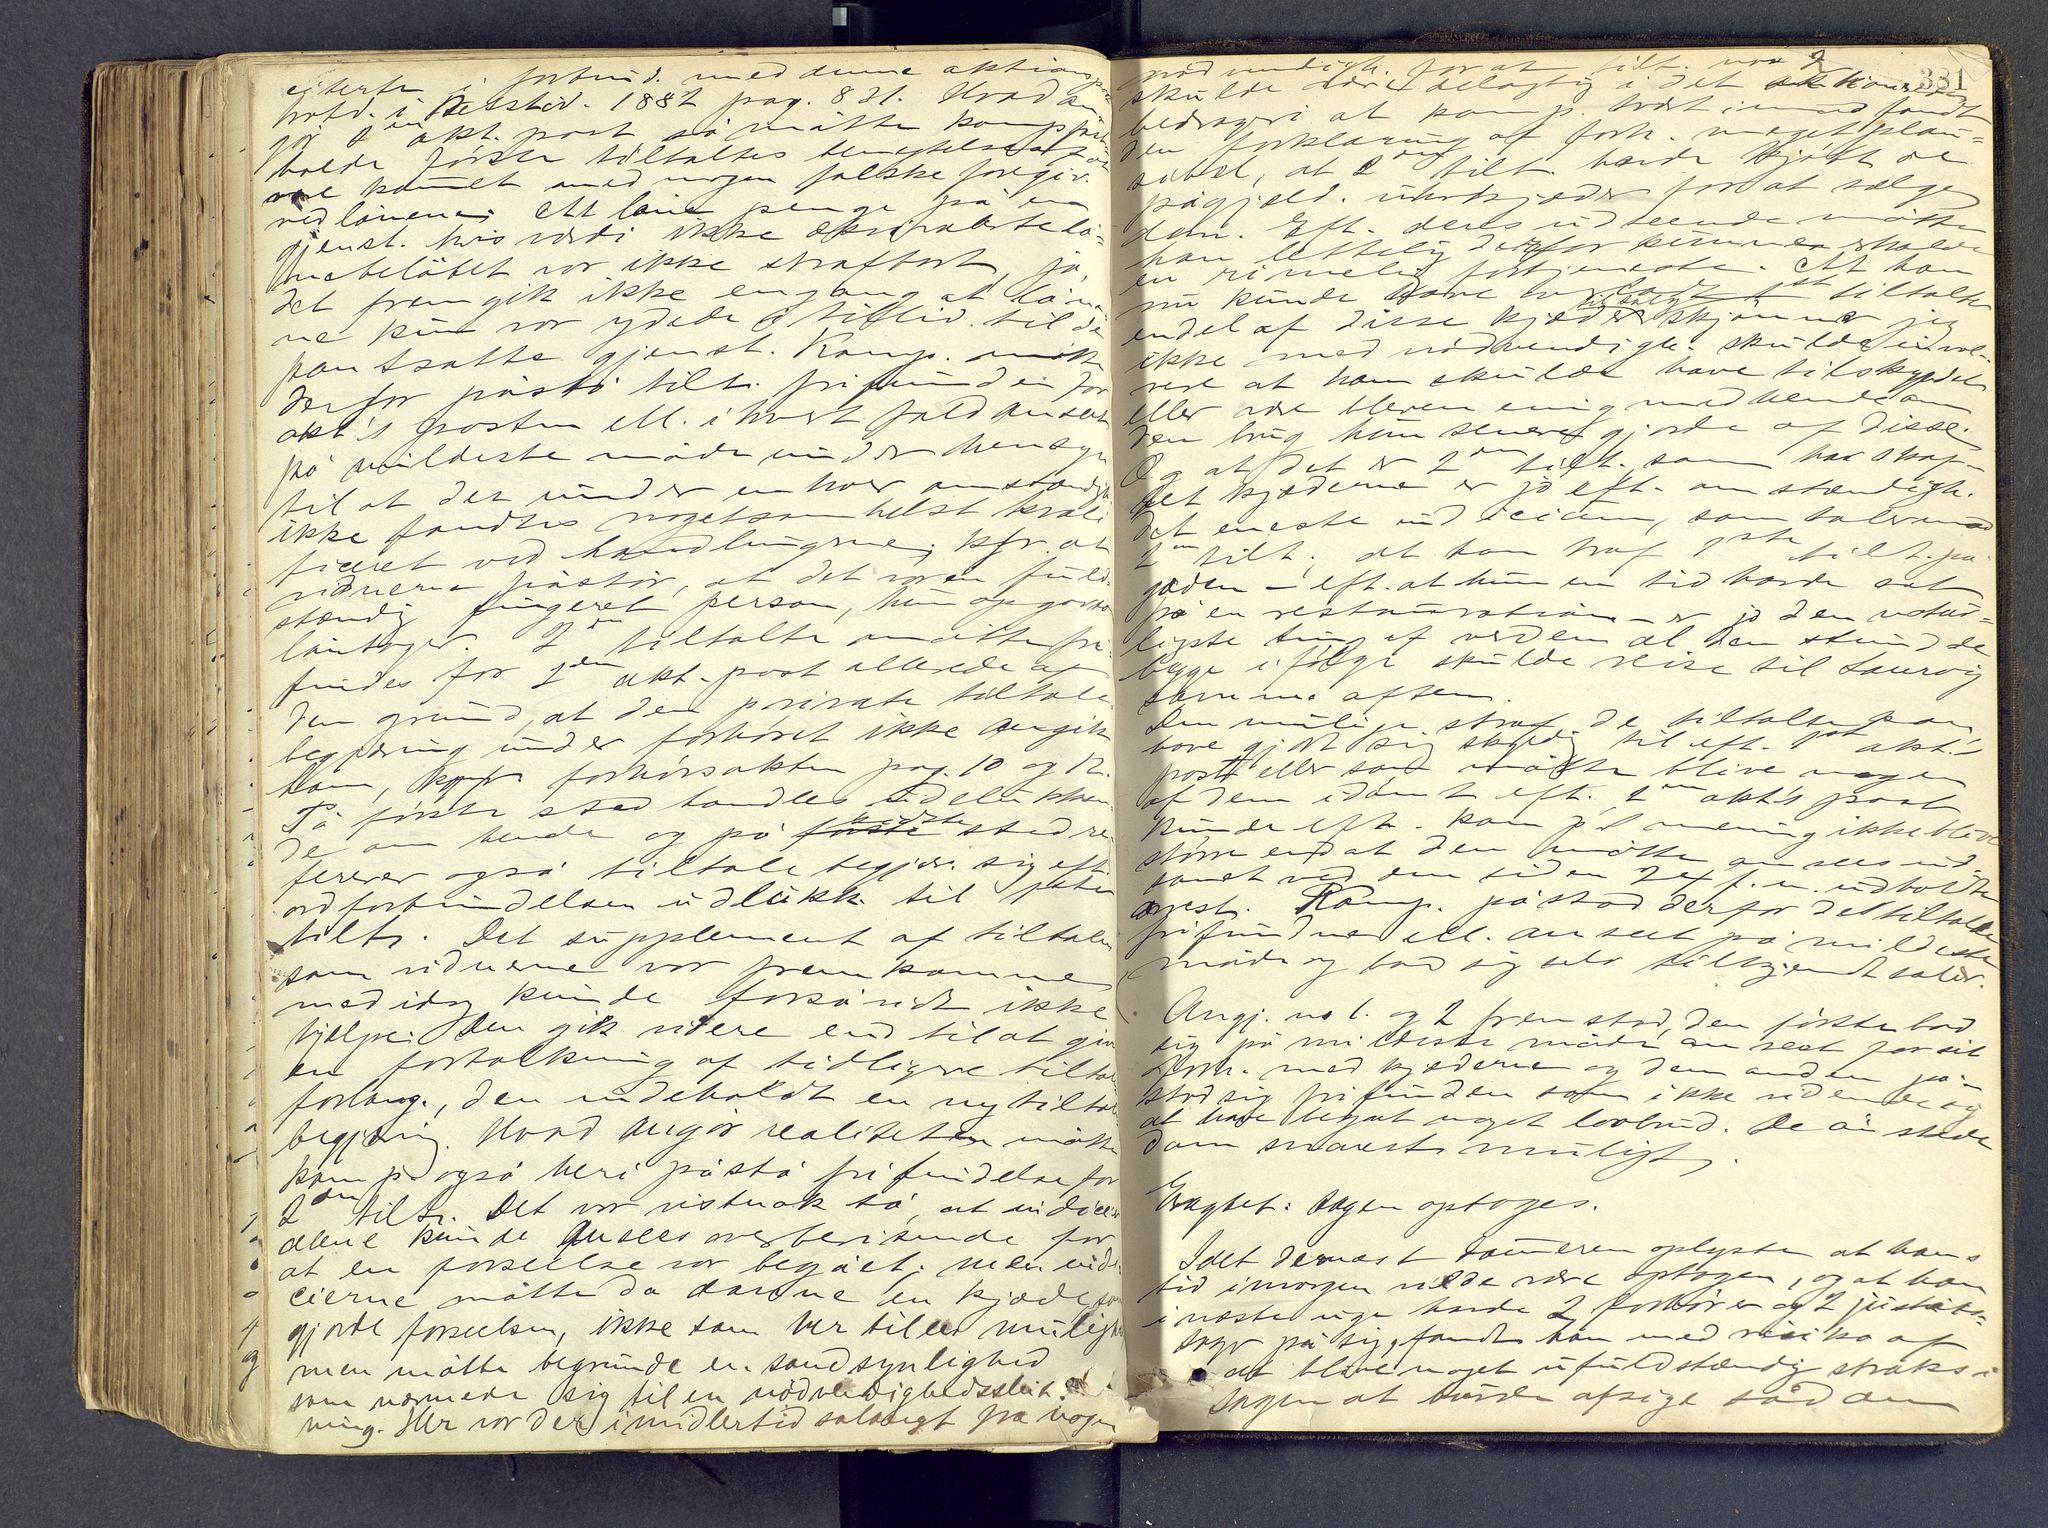 citerte i forbind. med denne aktions
hold. i Retstid. 1882 pag. 831. Hvad an
går 1ste akt. post så måtte komp. frem
holde første tiltaltes benegtelse af at
være kommet med nogen falske foregiv.
ved lånene. At låne penge på en
gjenst. hvis værdi ikke ækvivalerte lå-
nebeløbet var ikke strafbart, ja,
det fremgik ikke engang at låne-
ne kun var ydede i tillid til de
pantsatte gjenst. Komp. måtte
derfor påstå tilt. frifunden for
akt's posten ell. i hvert fald anseet
på mildeste måde under hensyn
til at der under enhver omstændigh.
ikke fandtes nogetsomhelst kvali
ficeret ved handlingerne; kfr. at
vidnerne påstår, at det var en fuld-
stændig fingeret person, hun opgav som
låntager. 2den tiltalte måtte fri-
findes for 2den akt. post allerede af
den grund, at den private tiltale-
begjæring under forhøret ikke angik
ham, kfr. forhørsakten pag. 10 og 12.
På første sted handles udelukken
de om hende og på sidste sted re
fererer også tiltale begjær. sig eft.
ordforbindelsen udelukk. til 1ste
tilt. Det supplement af tiltalen
som vidnerne var fremkomne
med idag kunde forsåvidt ikke
hjælpe. Den gik videre end til at give
en fortolkning af tidligere tiltale
forlang., den indeholdt en ny tiltale
begjæring. Hvad angår realiteten måtte
komp. også heri påstå frifindelse for
2den tilt. Det var vistnok så, at indicier
alene kunde ansees overbevisende for
at en forseelse var begået; men indi
cierne måtte da danne en kjæde som
gjorde forseelsen, ikke som her til en mulighed
men måtte begrunde en sandsynlighed
som nærmede sig til en nødvendighedsslut-
ning. Her var der imidlertid salangt fra nogen
381
nødvendigh. for at tilt. no 2
skulde være delagtig i det aktionerede
bedrageri at komp. tvert imod fandt
den forklaring af forh. meget plau-
sibel, at 2den tilt. havde kjøbt de
pågjeld. uhrkjæder for at sælge
dem. Eft. deres udseende måtte
han lettelig derfor kunne erholde
en rimelig fortjeneste. At han
nu kunde have overladt 1ste tiltalte
endel af disse kjæder tilsalgs skjønner jeg
ikke med nødvendigh. skulde invol-
vere at han skulde have tilskyndet
eller være bleven enig med hende om
den brug hun senere gjorde af disse.
Og at det er 2den tilt. som har skaf-
fet kjæderne er jo eft. omstændigh.
det eneste indicium, som taler mod
2den tilt.; at han traf 1ste tilt. på
gaden – eft. at hun en tid havde sat
på en restauration – er jo den natur-
ligste ting af verden al den stund de
begge ifølge skulde reise til Laurvig
samme aften.
Den mulige straf de tiltalte kan
have gjort sig skyldig til eft. 1ste akt.s
post eller som måtte blive nogen
af dem idømt eft. 2den akt's post
kunde eft. komp's mening ikke blive
større end at den måtte ansees ud-
sonet ved den siden 24 f. m. udholdte
arrest. Komp. påstod derfor de tiltalte
frifundne ell. anseet på mildeste
måde og bad sig selv tilkjendt salær.
Angj. no 1. og 2 fremstod, den første bad
sig på mildeste måde anseet for sit
forh. med kjæderne og den anden på-
stod sig frifunden som ikke vidende sig
at have begået noget lovbrud. De ønskede
dom snarest muligt.
Eragtet: sagen optages.
Idet dernæst dommeren oplyste at hans
tid imorgen vilde være optagen, og at han
i næste uge havde 2 forhører og 2 justits-
sager på sig, fandt han med risiko af
at blive noget ufuldstændig straks i
sagen at burde afsige sådan